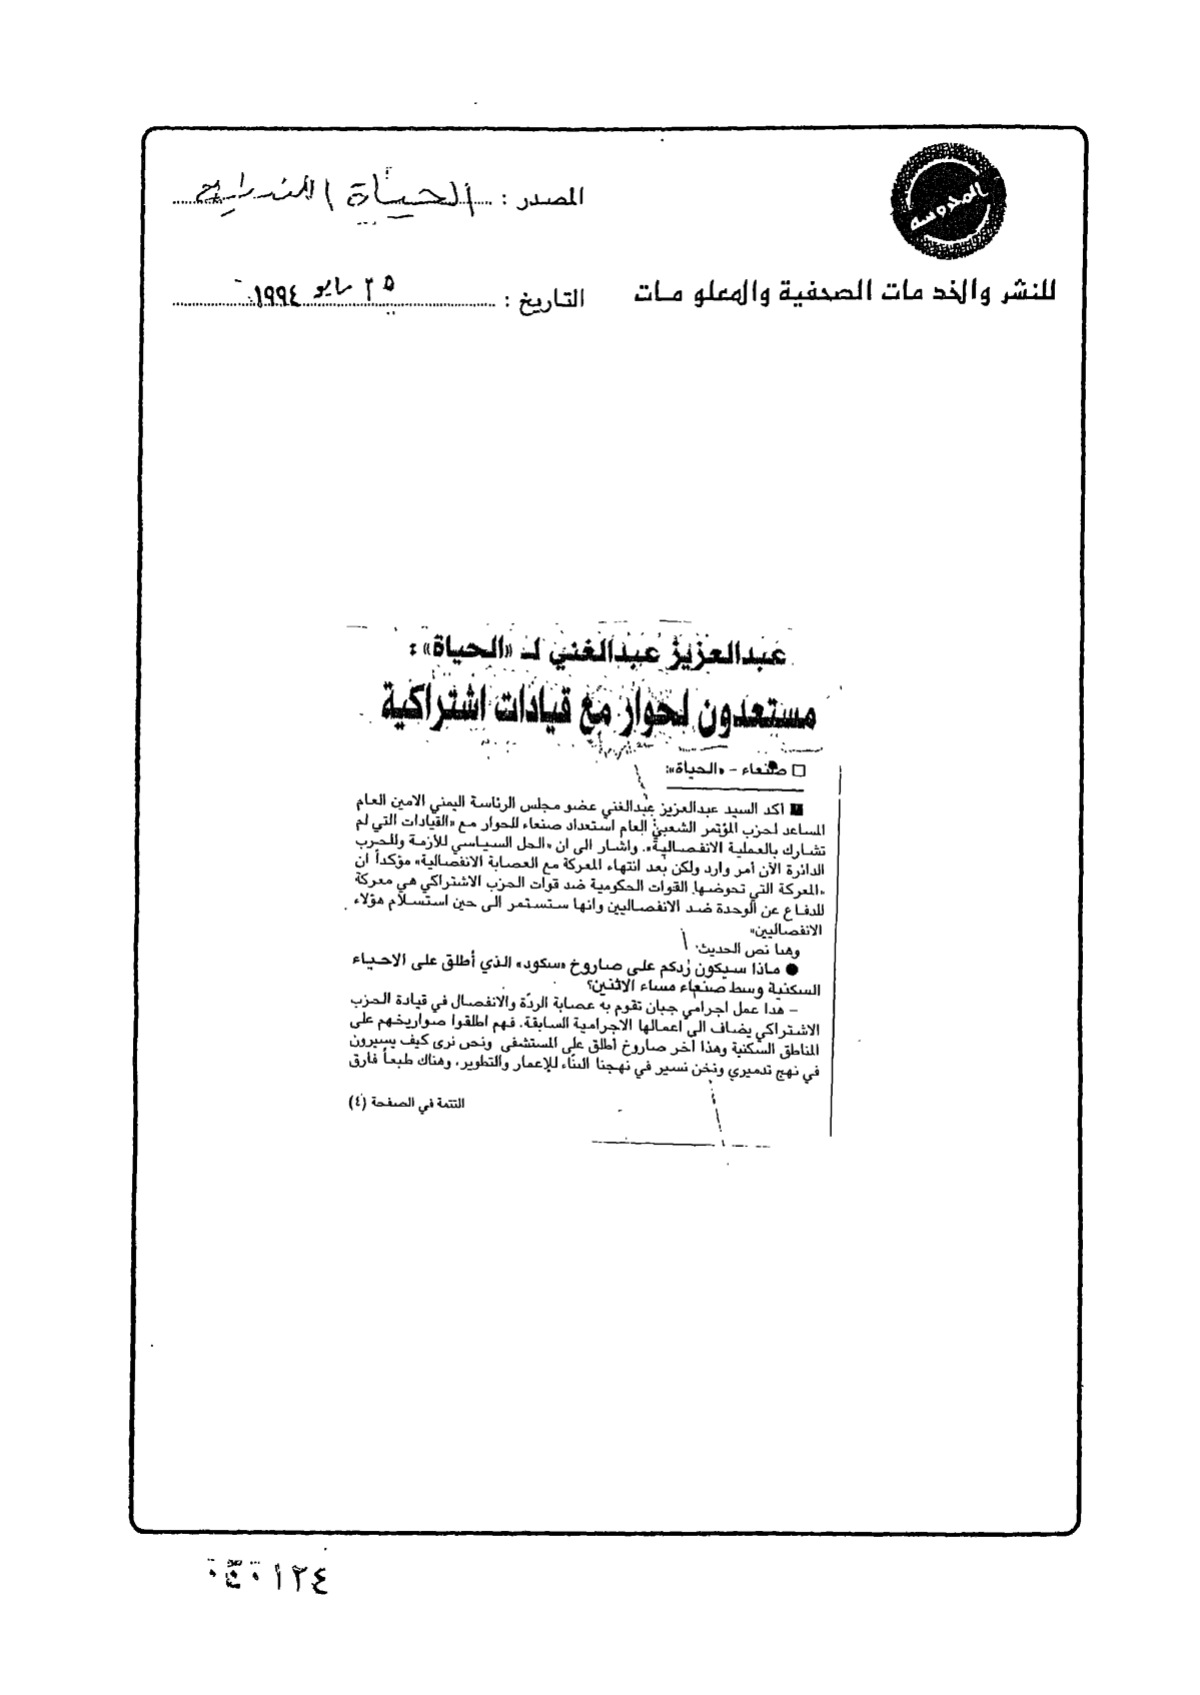 المدروسه
المصدر : الحياة اللندنية
للنشر والخدمات الصحفية والمعلومات
التاريخ : ٢٥ مايو ١٩٩٤
عبدالعزيز عبدالغني لـ «الحياة» :
مستعدون لحوار مع قيادات اشتراكية
□ صنعاء - «الحياة»:
■ أكد السيد عبدالعزيز عبدالغني عضو مجلس الرئاسة اليمني الامين العام
المساعد لحزب المؤتمر الشعبي العام استعداد صنعاء للحوار مع «القيادات التي لم
تشارك بالعملية الانفصالية». واشار الى ان «الحل السياسي للأزمة وللحرب
الدائرة الآن أمر وارد ولكن بعد انتهاء المعركة مع العصابة الانفصالية» مؤكداً ان
«المعركة التي تخوضها القوات الحكومية ضد قوات الحزب الاشتراكي هي معركة
للدفاع عن الوحدة ضد الانفصاليين وانها ستستمر الى حين استسلام هؤلاء
الانفصاليين»
وهنا نص الحديث:
● ماذا سيكون ردكم على صاروخ «سكود» الذي أطلق على الاحياء
السكنية وسط صنعاء مساء الاثنين؟
- هذا عمل اجرامي جبان تقوم به عصابة الردّة والانفصال في قيادة الحزب
الاشتراكي يضاف الى اعمالها الاجرامية السابقة. فهم اطلقوا صواريخهم على
المناطق السكنية وهذا آخر صاروخ أطلق على المستشفى ونحن نرى كيف يسيرون
في نهج تدميري ونحن نسير في نهجنا البنّاء للإعمار والتطوير، وهناك طبعاً فارق
التتمة في الصفحة (٤)